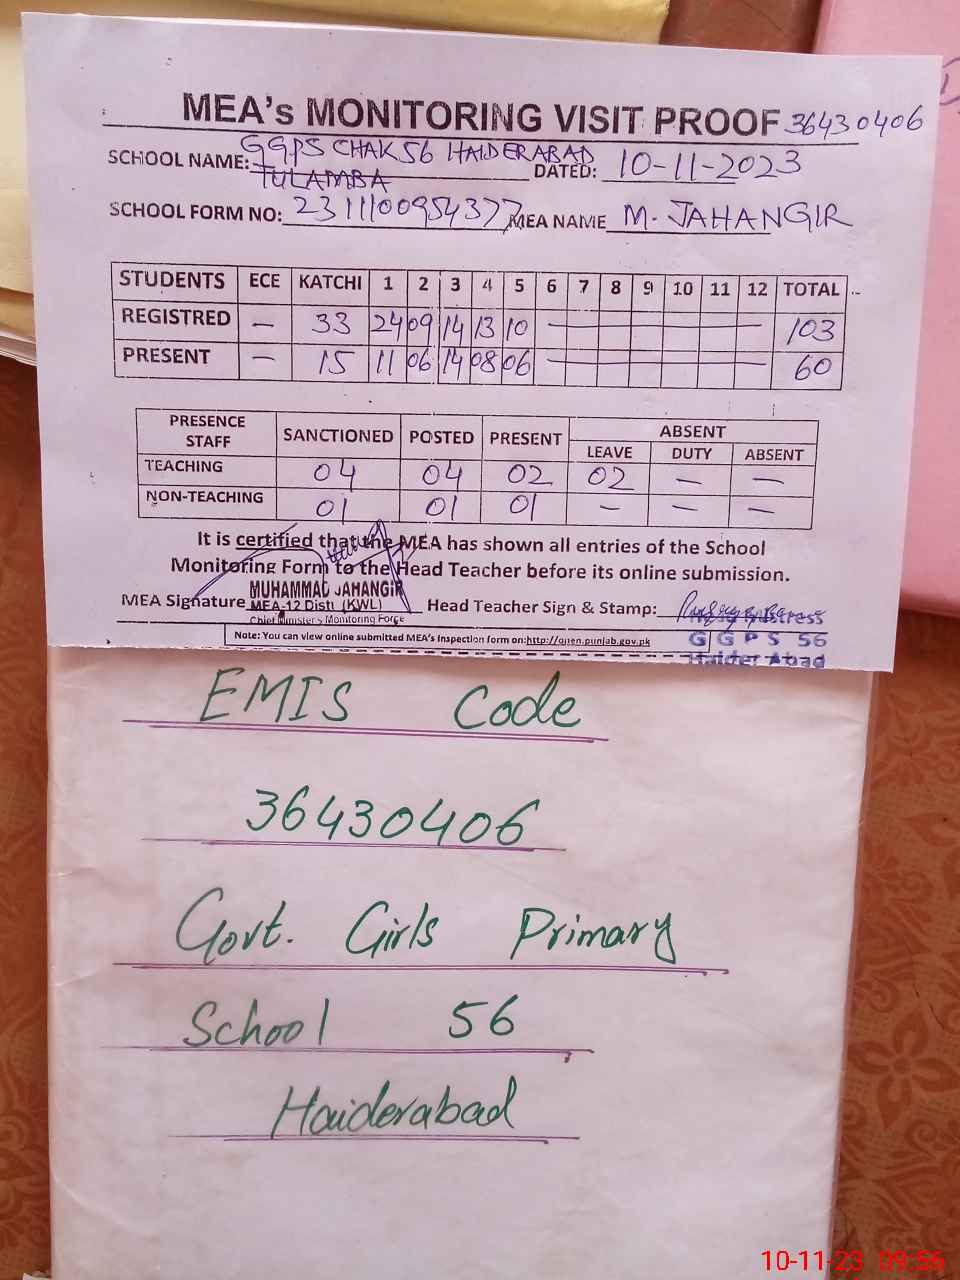 MEA's MONITORING VISIT PROOF 36430406
SCHOOL NAME: GGPS CHAK 56 HAIDERABAD DATED: 10-11-2023
TULAMBA
SCHOOL FORM NO: 2311100954377 MEA NAME M. JAHANGIR
STUDENTS ECE KATCHI 1 2 3 4 5 6 7 8 9 10 11 12 TOTAL
REGISTRED — 33 24 09 14 13 10 — 103
PRESENT — 15 11 06 14 08 06 — 60
PRESENCE STAFF SANCTIONED POSTED PRESENT ABSENT
LEAVE DUTY ABSENT
TEACHING 04 04 02 02 — —
NON-TEACHING 01 01 01 — — —
It is certified that the MEA has shown all entries of the School
Monitoring Form to the Head Teacher before its online submission.
MUHAMMAD JAHANGIR
MEA Signature MEA-12 Distt (KWL) Head Teacher Sign & Stamp:
Chief Minister's Monitoring Force
Head Mistress
Note: You can view online submitted MEA's Inspection form on:http://open.punjab.gov.pk
G G P S 56
Haider Abad
EMIS Code
36430406
Govt. Girls Primary
School 56
Haiderabad
10-11-23 09:56